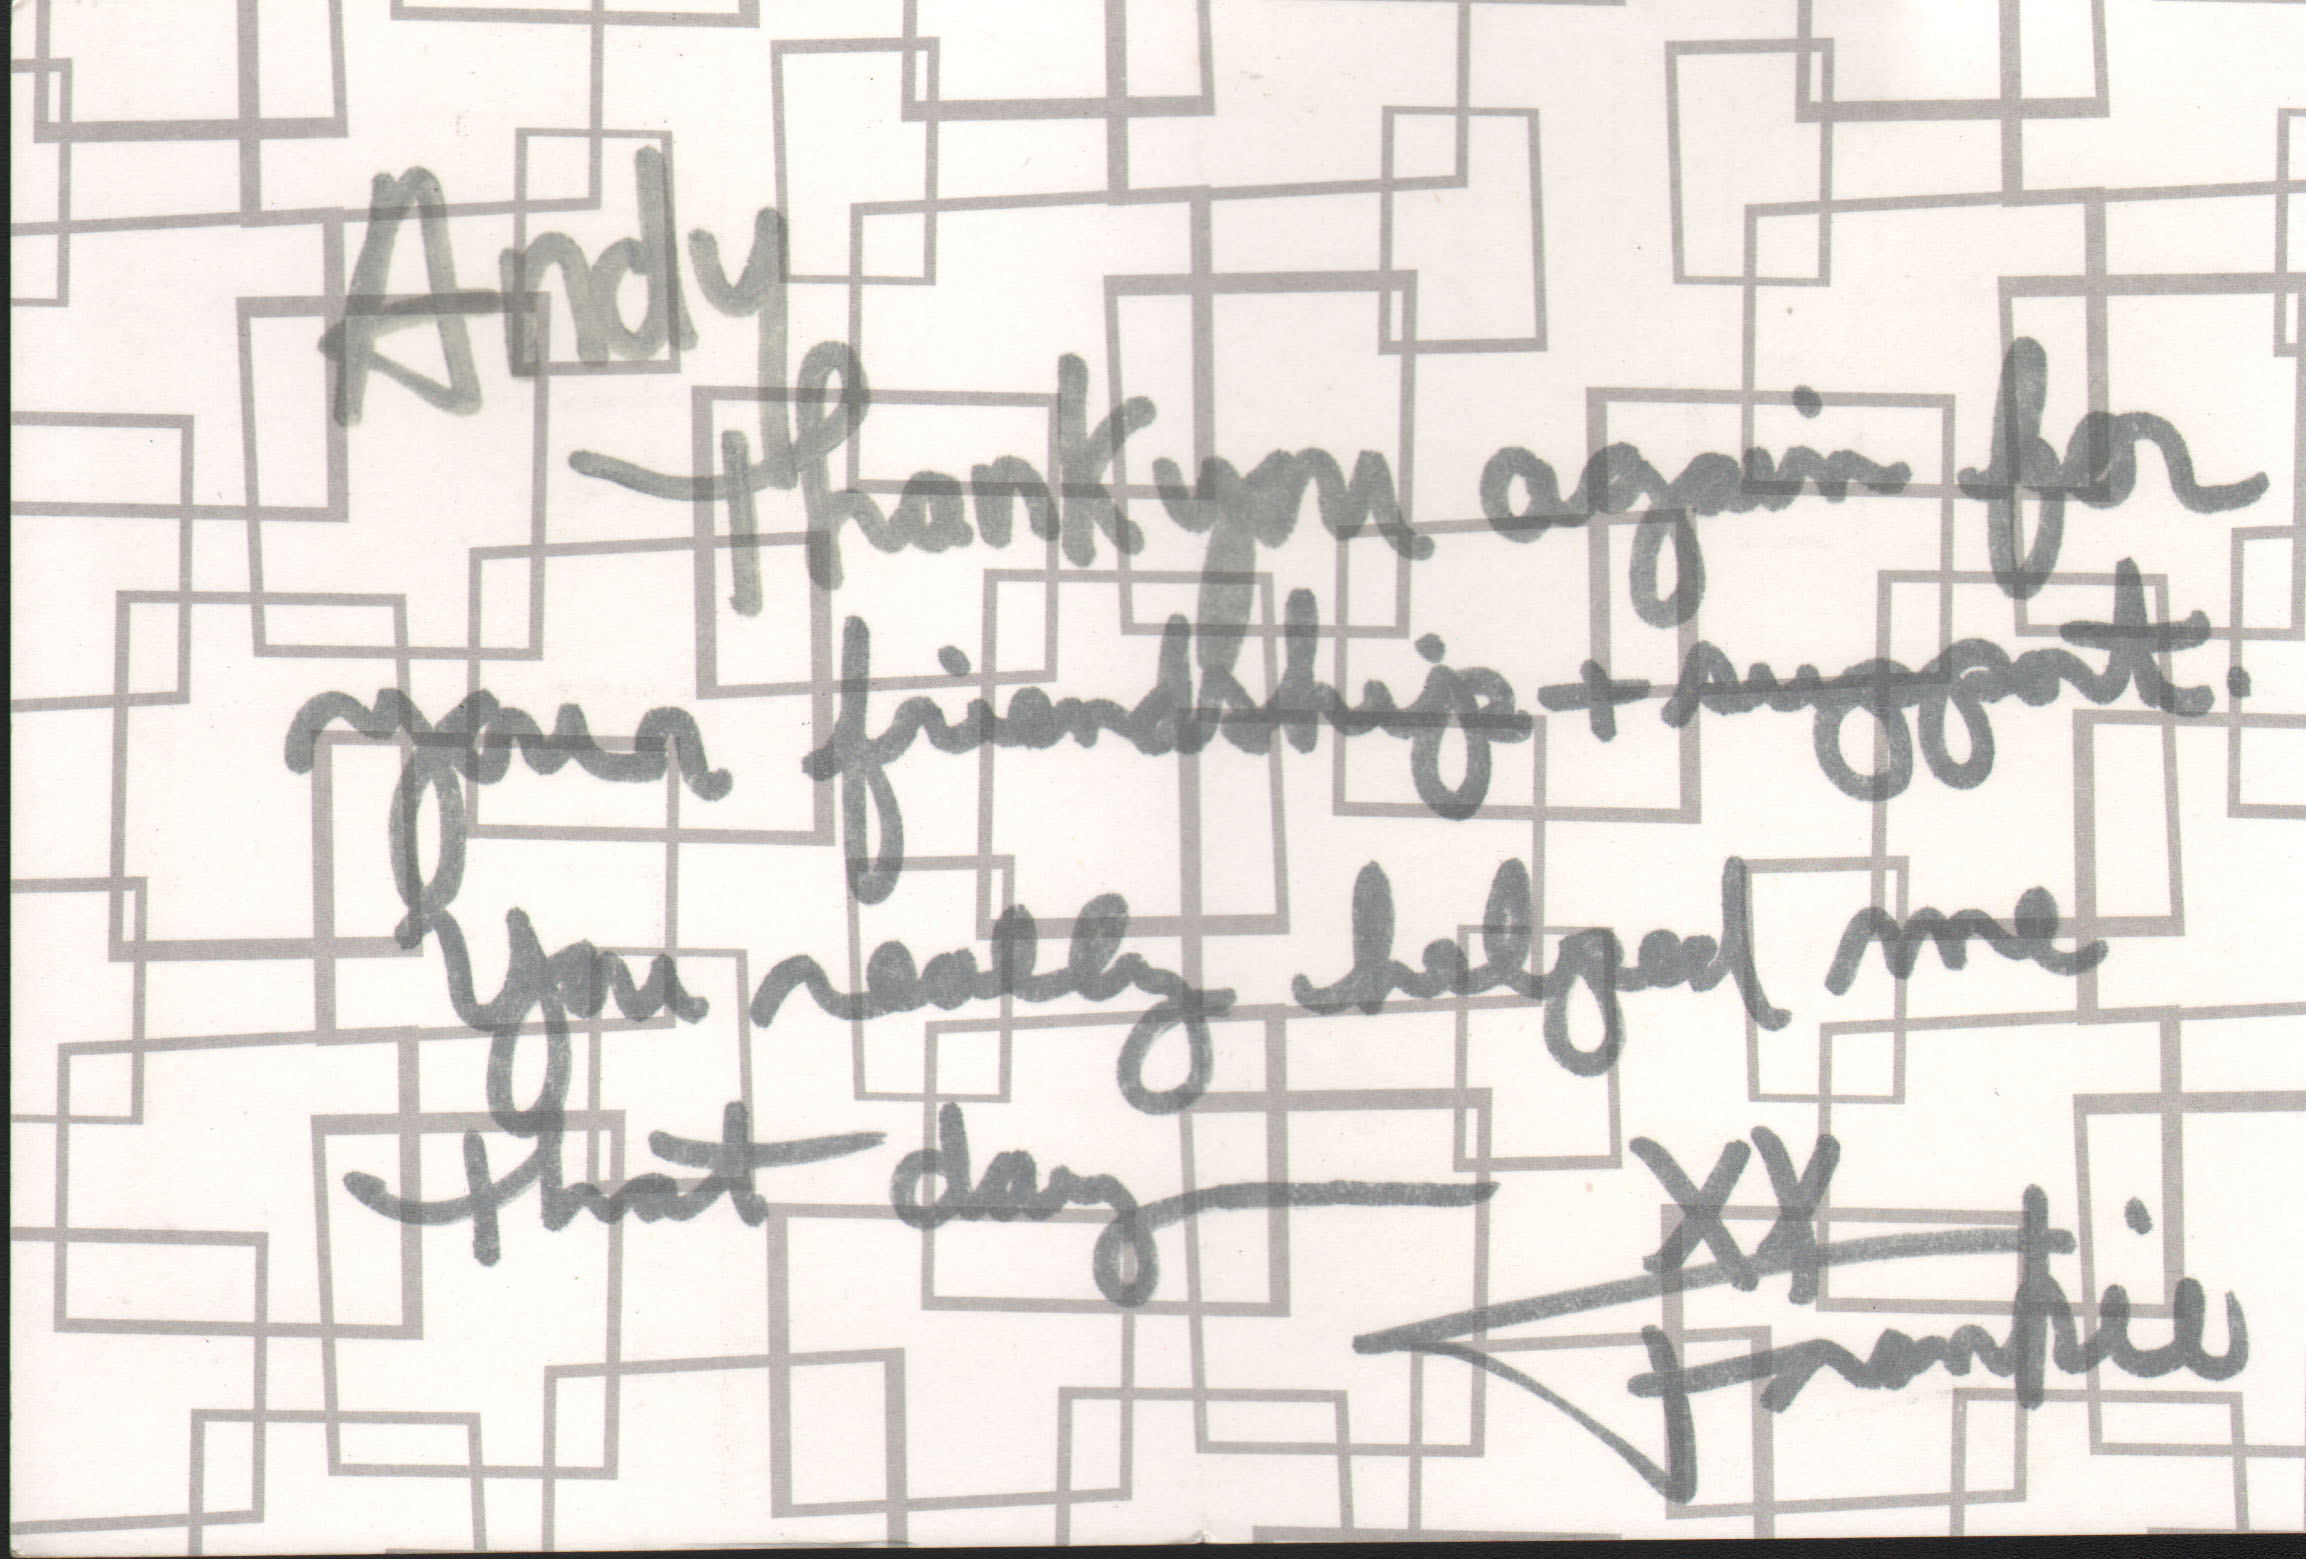 Andy
Thank you again for
your friendship + support.
You really helped me
that day
XX
Frankie